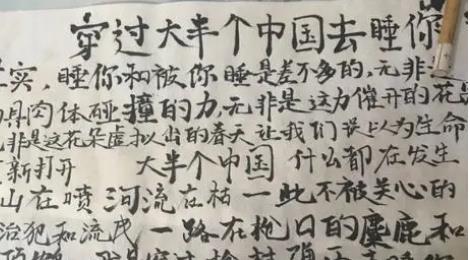 穿过大半个中国去睡你
实，睡你和被你睡是差不多的，无非
具肉体碰撞的力，无非是这力催开的花朵
非是这花朵虚拟出的春天让我们误以为生命
新打开 大半个中国 什么都在发生
山在喷 河流在枯 一些不被关心的
治犯和流民 一路在枪口的麋鹿和